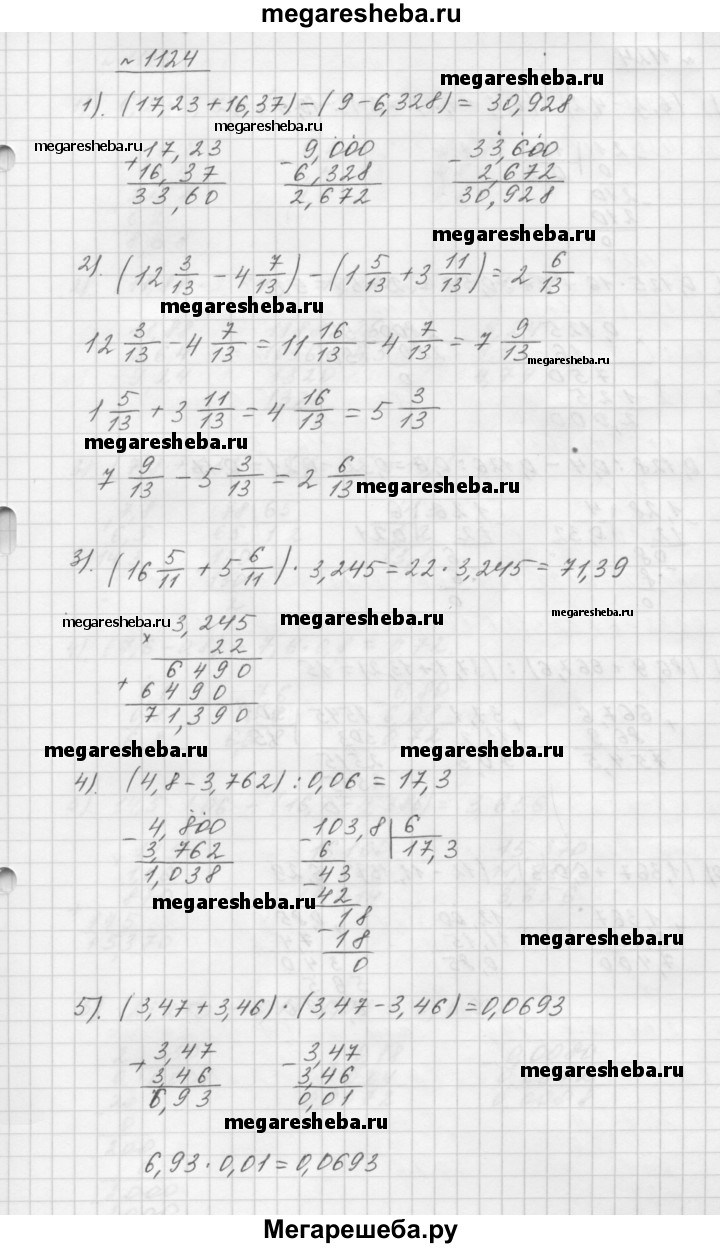 megaresheba.ru
№ 1124
megaresheba.ru
1). (17,23+16,37)-(9-6,328)= 30,928
megaresheba.ru
megaresheba.ru
+17,23 -9,000 -33,600
16,37 6,328 2,672
33,60 2,672 30,928
megaresheba.ru
2). (12 3/13 - 4 7/13) - (1 5/13 + 3 11/13) = 2 6/13
megaresheba.ru
12 3/13 - 4 7/13 = 11 16/13 - 4 7/13 = 7 9/13
megaresheba.ru
1 5/13 + 3 11/13 = 4 16/13 = 5 3/13
megaresheba.ru
7 9/13 - 5 3/13 = 2 6/13
megaresheba.ru
3). (16 5/11 + 5 6/11) · 3,245 = 22 · 3,245 = 71,39
megaresheba.ru
megaresheba.ru megaresheba.ru
× 3,245
22
6490
+ 6490
71,390
megaresheba.ru megaresheba.ru
4). (4,8-3,762):0,06 = 17,3
-4,800 -103,8 | 6
3,762 6 17,3
1,038 -43
42
megaresheba.ru
-18
18
megaresheba.ru
0
5). (3,47+3,46)·(3,47-3,46)=0,0693
+3,47 -3,47
3,46 3,46
megaresheba.ru
6,93 0,01
megaresheba.ru
6,93·0,01=0,0693
Мегарешеба.ру